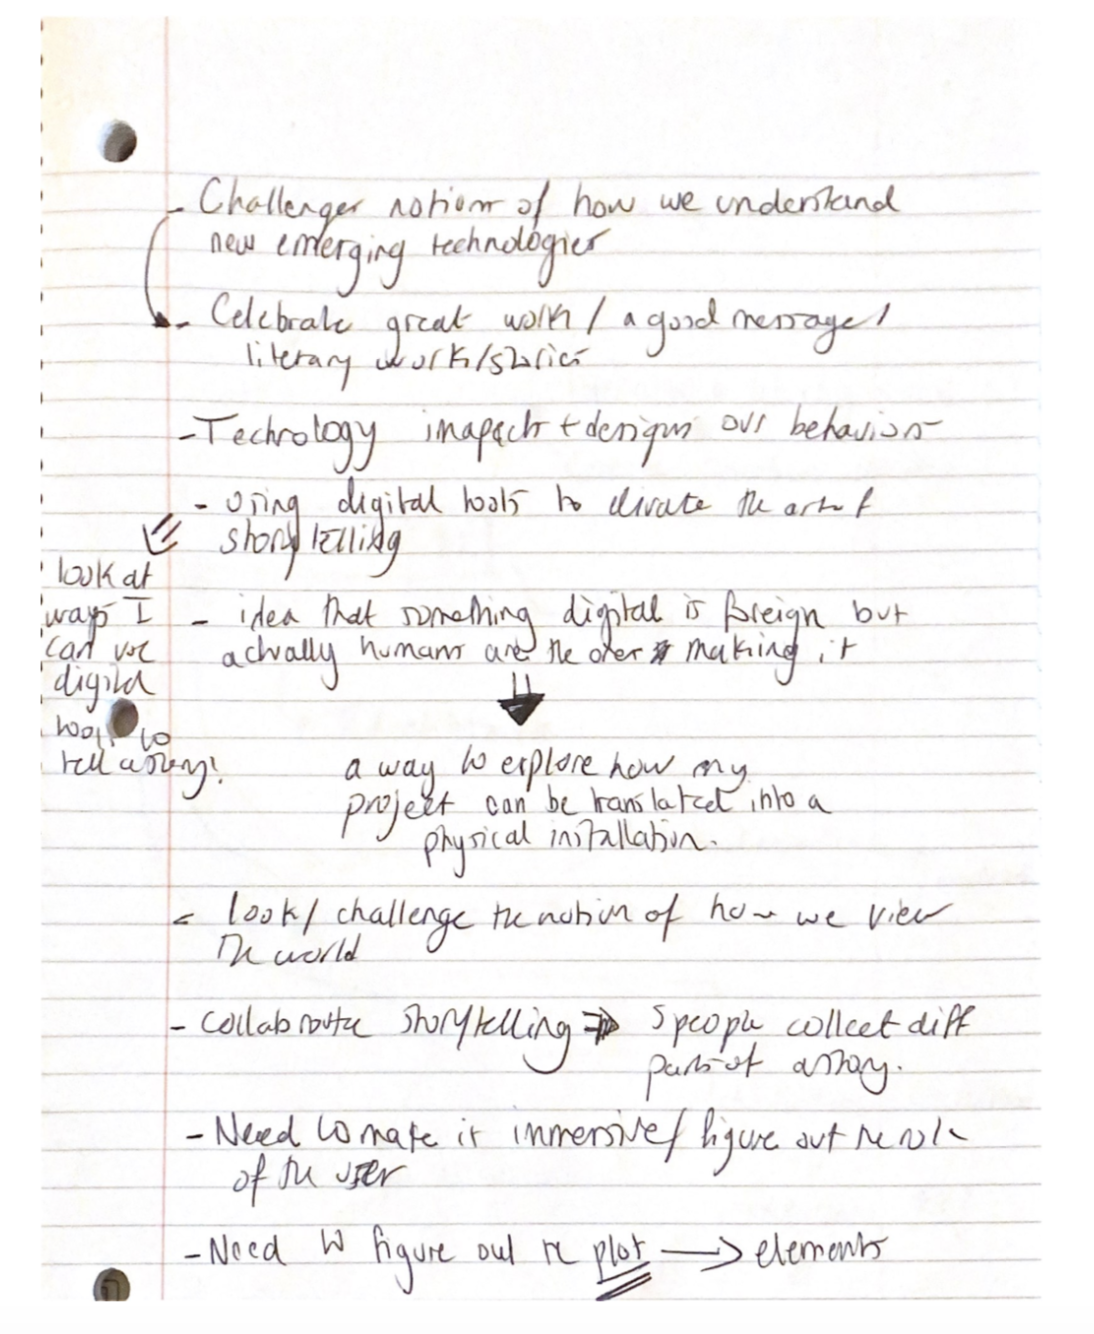 - Challenges notions of how we understand
new emerging technologies
- Celebrate great work / a good message /
literary work/stories
- Technology imapacts + designs our behaviors
- Using digital tools to elivate the art of
storytelling
look at
ways I
can use
digital
tools to
tell a story!
- idea that something digital is foreign but
actually humans are the ones making it
a way to explore how my
project can be translated into a
physical installation.
- look/ challenge the notion of how we view
the world
- Collaborative storytelling ⇒ 5 people collect diff
parts of a story.
- Need to make it immersive/ figure out the role
of the user
- Need to figure out the plot → elements